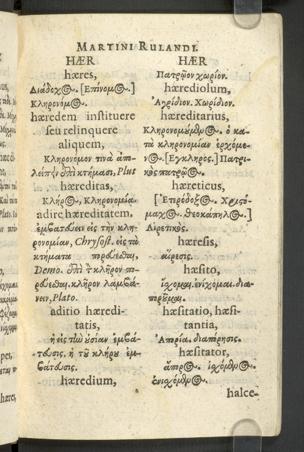 MARTINI RULANDI.
HÆR
hæres,
Διάδοχος. [Ἐπίνομος.]
Κληρονόμος.
hæredem instituere
seu relinquere
aliquem,
Κληρονόμον τινὰ ἀπολείπειν
κτήμασι, Plut
hæreditas,
Κλῆρος, Κληρονομία.
adire hæreditatem,
ἐμβατεύειν εἰς τὴν κληρονομίαν,
Chrysost. εἰς τὰ
κτήματα
Demo. κλῆρον
κλῆρον λαμβάνειν,
Plato.
aditio hæreditatis,
ἡ εἰς τὴν οὐσίαν ἐμβάτευσις,
ἢ τοῦ κλήρου ἐμβάτευσις.
hæredium,
HÆR
Πατρῷον χωρίον.
hærediolum,
Ἀγρίδιον. Χωρίδιον.
hæreditarius,
Κληρονομούμενος. ὁ κατὰ
κληρονομίαν ἐρχόμενος.
[Ἔγκληρος.] Πατρικὸς
hæreticus,
[Ἑτερόδοξος. Χριστομάχος.
Θεοκάπηλος.]
Αἱρετικός.
hæresis,
αἵρεσις.
hæsito,
ἴσχομαι. ἐνίσχομαι.
hæsitatio, hæsitantia,
Ἀπορία. διαπόρησις.
hæsitator,
ἄπορος. ἰσχόμενος.
ἐνισχόμενος.
halce-